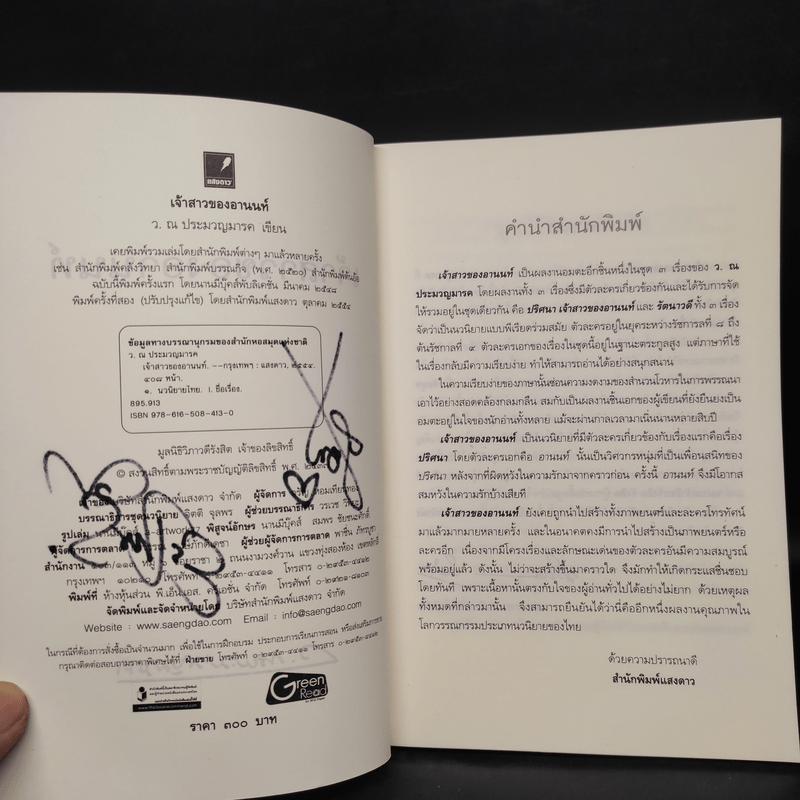 แสงดาว
เจ้าสาวของอานนท์
ว. ณ ประมวญมารค เขียน
เคยพิมพ์รวมเล่มโดยสำนักพิมพ์ต่างๆ มาแล้วหลายครั้ง
เช่น สำนักพิมพ์คลังวิทยา สำนักพิมพ์บรรณกิจ (พ.ศ. ๒๕๒๐) สำนักพิมพ์ต้นอ้อ
ฉบับนี้พิมพ์ครั้งแรก โดยนานมีบุ๊คส์พับลิเคชั่น มีนาคม ๒๕๔๘
พิมพ์ครั้งที่สอง (ปรับปรุงแก้ไข) โดยสำนักพิมพ์แสงดาว ตุลาคม ๒๕๕๔
ข้อมูลทางบรรณานุกรมของสำนักหอสมุดแห่งชาติ
ว. ณ ประมวญมารค
เจ้าสาวของอานนท์. --กรุงเทพฯ : แสงดาว, ๒๕๕๔.
๔๐๘ หน้า.
๑. นวนิยายไทย. I. ชื่อเรื่อง.
895.913
ISBN 978-616-508-413-0
มูลนิธิวิภาวดีรังสิต เจ้าของลิขสิทธิ์
© สงวนสิทธิ์ตามพระราชบัญญัติลิขสิทธิ์ พ.ศ.
บริษัทสำนักพิมพ์แสงดาว จำกัด ผู้จัดการ หอมเทียรทอง
บรรณาธิการชุดนวนิยาย จิตติ ผู้ช่วยบรรณาธิการ วรเวช
รูปเล่ม artwork พิสูจน์อักษร นานมีบุ๊คส์ สมพร ชัยชนะศักดิ์
ผู้จัดการการตลาด ผู้ช่วยผู้จัดการการตลาด พาชื่น
สำนักงาน ถนนงามวงศ์วาน แขวงทุ่งสองห้อง เขตหลักสี่
กรุงเทพฯ โทรศัพท์ ๐-๒๙๕๓-๔๔๑๑ โทรสาร
พิมพ์ที่ ห้างหุ้นส่วน พี.เอ็น.เอส. ครีเอชั่น จำกัด โทรศัพท์
จัดพิมพ์และจัดจำหน่ายโดย บริษัทสำนักพิมพ์แสงดาว จำกัด
Website : www.saengdao.com Email : info@saengdao.com
ในกรณีที่ต้องการสั่งซื้อเป็นจำนวนมาก เพื่อใช้ในการฝึกอบรม ประกอบการเรียนการสอน หรือส่งเสริมการขาย
กรุณาติดต่อสอบถามราคาพิเศษได้ที่ ฝ่ายขาย โทรศัพท์ ๐-๒๙๕๓-๔๔๑๑ โทรสาร
Green
Read
ราคา ๓๐๐ บาท
คำนำสำนักพิมพ์
เจ้าสาวของอานนท์ เป็นผลงานอมตะอีกชิ้นหนึ่งในชุด ๓ เรื่องของ ว. ณ
ประมวญมารค โดยผลงานทั้ง ๓ เรื่องซึ่งมีตัวละครเกี่ยวข้องกันและได้รับการจัด
ให้รวมอยู่ในชุดเดียวกัน คือ ปริศนา เจ้าสาวของอานนท์ และ รัตนาวดี ทั้ง ๓ เรื่อง
จัดว่าเป็นนวนิยายแบบพีเรียดร่วมสมัย ตัวละครอยู่ในยุคระหว่างรัชกาลที่ ๘ ถึง
ต้นรัชกาลที่ ๙ ตัวละครเอกของเรื่องในชุดนี้อยู่ในฐานะตระกูลสูง แต่ภาษาที่ใช้
ในเรื่องกลับมีความเรียบง่าย ทำให้สามารถอ่านได้อย่างสนุกสนาน
ในความเรียบง่ายของภาษานั้นซ่อนความงดงามของสำนวนโวหารในการพรรณนา
เอาไว้อย่างสอดคล้องกลมกลืน สมกับเป็นผลงานชิ้นเอกของผู้เขียนที่ยังยืนยงเป็น
อมตะอยู่ในใจของนักอ่านทั้งหลาย แม้จะผ่านกาลเวลามาเนิ่นนานหลายสิบปี
เจ้าสาวของอานนท์ เป็นนวนิยายที่มีตัวละครเกี่ยวข้องกับเรื่องแรกคือเรื่อง
ปริศนา โดยตัวละครเอกคือ อานนท์ นั้นเป็นวิศวกรหนุ่มที่เป็นเพื่อนสนิทของ
ปริศนา หลังจากที่ผิดหวังในความรักมาจากคราวก่อน ครั้งนี้ อานนท์ จึงมีโอกาส
สมหวังในความรักบ้างเสียที
เจ้าสาวของอานนท์ ยังเคยถูกนำไปสร้างทั้งภาพยนตร์และละครโทรทัศน์
มาแล้วมากมายหลายครั้ง และในอนาคตคงมีการนำไปสร้างเป็นภาพยนตร์หรือ
ละครอีก เนื่องจากมีโครงเรื่องและลักษณะเด่นของตัวละครอันมีความสมบูรณ์
พร้อมอยู่แล้ว ดังนั้น ไม่ว่าจะสร้างขึ้นมาคราวใด จึงมักทำให้เกิดกระแสชื่นชอบ
โดยทันที เพราะเนื้อหานั้นตรงกับใจของผู้อ่านทั่วไปได้อย่างไม่ยาก ด้วยเหตุผล
ทั้งหมดที่กล่าวมานั้น จึงสามารถยืนยันได้ว่านี่คืออีกหนึ่งผลงานคุณภาพใน
โลกวรรณกรรมประเภทนวนิยายของไทย
ด้วยความปรารถนาดี
สำนักพิมพ์แสงดาว